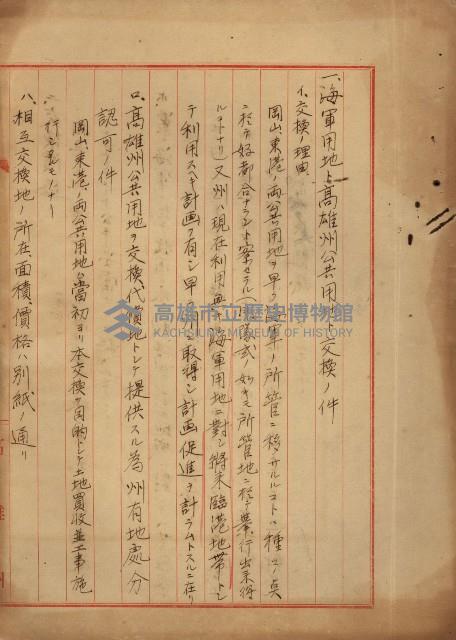 一、海軍用地ト高雄州公共用地ト交換ノ件
イ、交換ノ理由
岡山、東港ノ両公共用地ヲ早ク海軍ノ所管ニ移サルルコトハ種々ノ点
ニ於テ好都合ナラント察セラル
所管地ニ於テ業行出来得
ルコトナリ）又州ハ現在利用
海軍用地ニ対シ将来臨港地帯トシ
テ利用スベキ計画ヲ有シ早
取得シ計画促進ヲ計ラムトスルニ在リ
ロ、高雄州公共用地ヲ交換代償地トシテ提供スル為州有地処分
認可ノ件
岡山、東港ノ両公共用地ハ當初ヨリ本交換ヲ目的トシテ土地買收並工事施
行シ
モノナリ
ハ、相互交換地ノ所在、面積、價格ハ別紙ノ通リ
高雄市立歷史博物館
KAOHSIUNG MUSEUM OF HISTORY